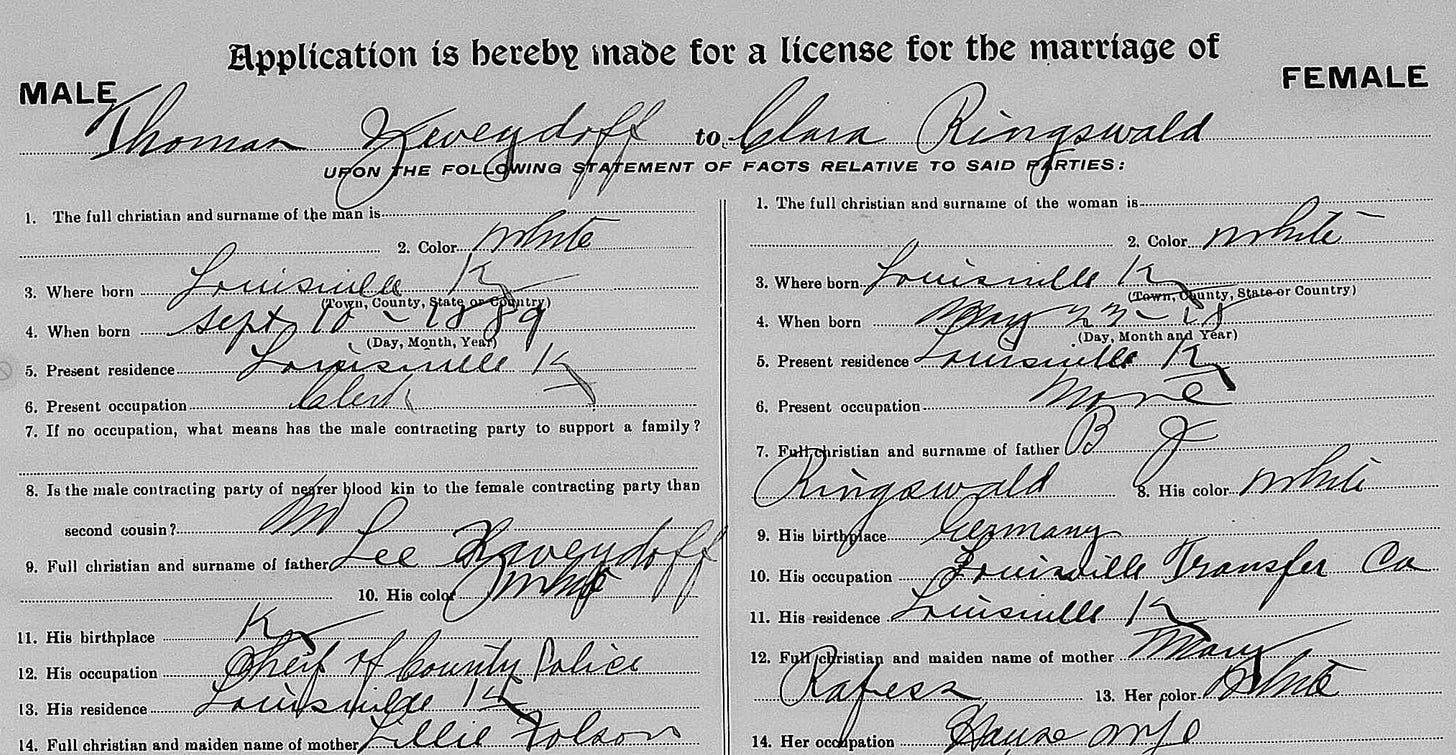 Application is hereby made for a license for the marriage of
MALE FEMALE
Thomas to Clara Ringswald
UPON THE FOLLOWING STATEMENT OF FACTS RELATIVE TO SAID PARTIES:
1. The full christian and surname of the man is
2. Color White
3. Where born Louisville Ky
(Town, County, State or Country)
4. When born Sept 10 - 1889
(Day, Month, Year)
5. Present residence Louisville Ky
6. Present occupation Clerk
7. If no occupation, what means has the male contracting party to support a family?
8. Is the male contracting party of nearer blood kin to the female contracting party than
second cousin? No
9. Full christian and surname of father Lee
10. His color White
11. His birthplace Ky
12. His occupation Cheif of County Police
13. His residence Louisville Ky
14. Full christian and maiden name of mother Lillie Folson
1. The full christian and surname of the woman is
2. Color White
3. Where born Louisville Ky
(Town, County, State or Country)
4. When born May
(Day, Month and Year)
5. Present residence Louisville Ky
6. Present occupation None
7. Full christian and surname of father B J
Ringswald 8. His color White
9. His birthplace Germany
10. His occupation Louisville Transfer Co
11. His residence Louisville Ky
12. Full christian and maiden name of mother Mary
13. Her color White
14. Her occupation House wife